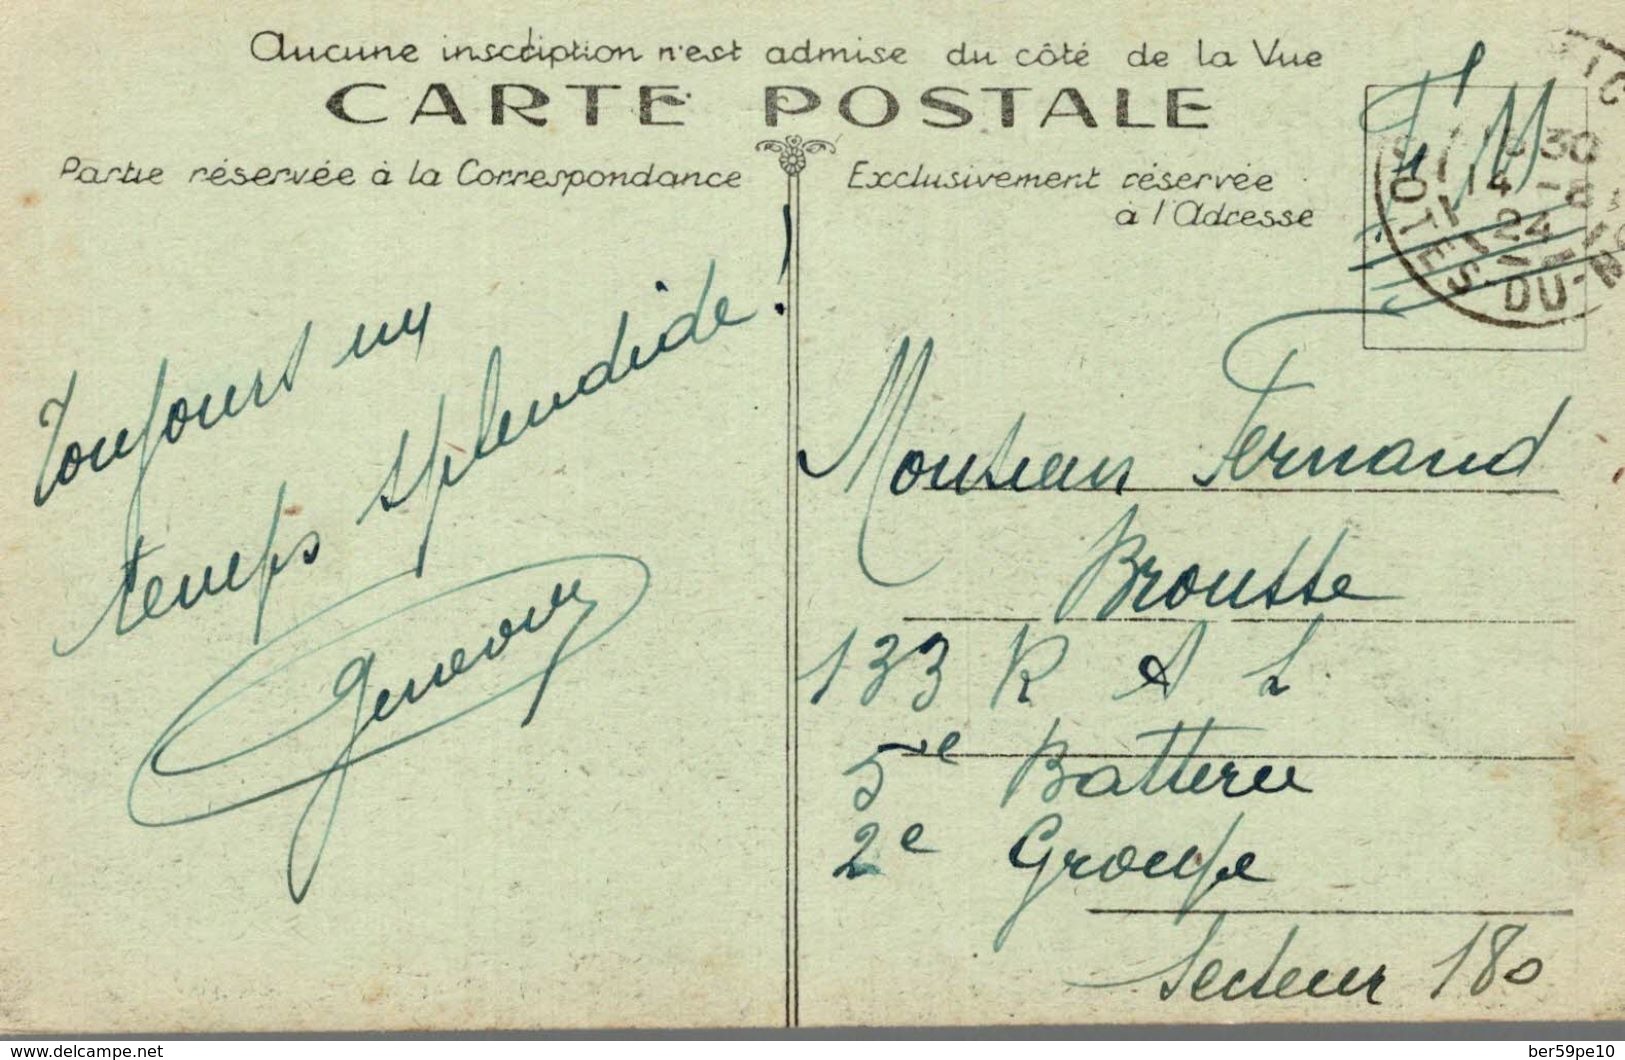 Aucune inscription n'est admise du côté de la Vue
CARTE POSTALE
Partie réservée à la Correspondance
Exclusivement réservée
à l'Adresse
F. M
30
14 -8
24
OTES-DU-
Toujours un
temps splendide !
Monsieur Fernand
Brousse
133 R A L
5e Batterie
2e Groupe
Secteur 180
delcampe.net
ber59pe10